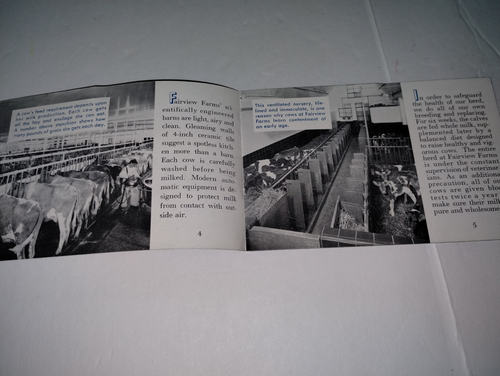 A cow's feed requirement depends upon
her milk production. Each cow gets
all the hay and silage she can eat.
A number above her stanchion shows how
many pounds of grain she gets each day.
Fairview Farms' sci-
entifically engineered
barns are light, airy and
clean. Gleaming walls
of 4-inch ceramic tile
suggest a spotless kitch-
en more than a barn.
Each cow is carefully
washed before being
milked. Modern auto-
matic equipment is de-
signed to protect milk
from contact with out-
side air.
4
This ventilated nursery, tile-
lined and immaculate, is one
reason why cows at Fairview
Farms learn contentment at
an early age.
In order to safeguard
the health of our herd,
we do all of our own
breeding and replacing.
For six weeks, the calves
are fed whole milk, sup-
plemented later by a
special diet designed
to raise healthy and vig-
orous cows. The entire
herd at Fairview Farms
is under the constant
supervision of veterinar-
ians. As an additional
precaution, all of our
cows are given blood
tests twice a year to
make sure their milk is
pure and wholesome.
5